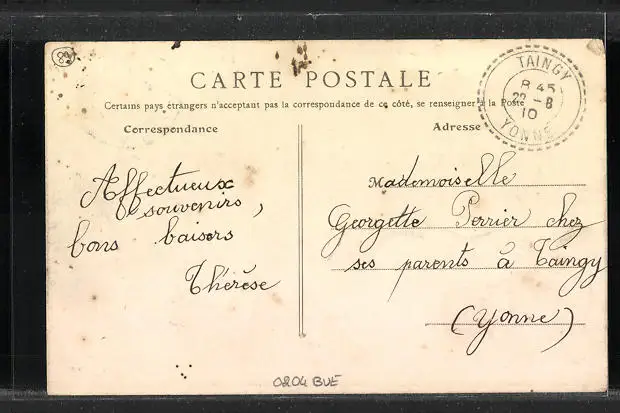 89
CARTE POSTALE
Certains pays étrangers n'acceptant pas la correspondance de ce côté, se renseigner à la Poste
Correspondance
Adresse
TAINGY
8 45
22 - 8
10
YONNE
Affectueux
souvenirs,
bons baisers
Thérèse
Mademoiselle
Georgette Perrier chez
ses parents à Taingy
(Yonne)
0204 BUE